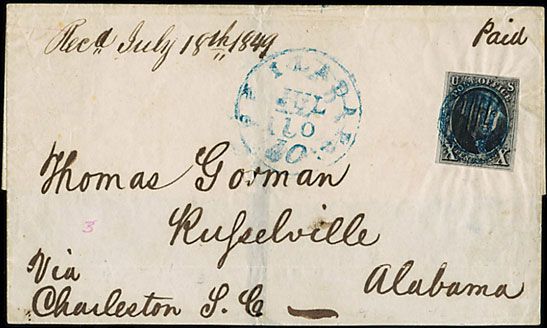 Recd July 18th 1849
Paid
PHILADA Pa
JUL
10
10
U S
POST OFFICE
X X
Thomas Gorman
Russelville
Alabama
Via
Charleston S. C
3